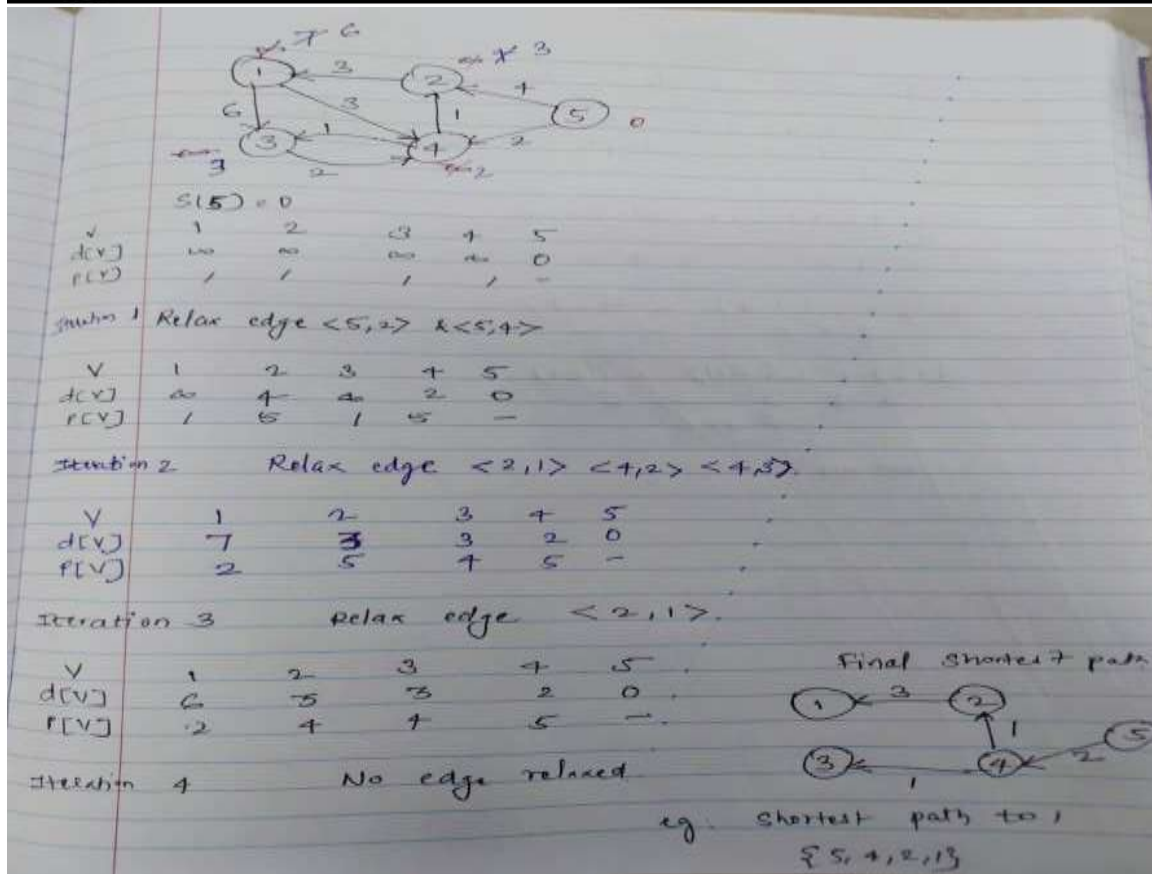 ∞ 7 6
∞ 4 3
1 3 2 4
6 3 1 5 0
3 1 4 2
∞ 3 2 ∞ 2
S(5) = 0
V 1 2 3 4 5
d[V] ∞ ∞ ∞ ∞ 0
P[V] / / / / -
Iteration 1 Relax edge <5,2> & <5,4>
V 1 2 3 4 5
d[V] ∞ 4 ∞ 2 0
P[V] / 5 / 5 -
Iteration 2 Relax edge <2,1> <4,2> <4,3>.
V 1 2 3 4 5
d[V] 7 3 3 2 0
P[V] 2 5 4 5 -
Iteration 3 Relax edge <2,1>.
V 1 2 3 4 5 .
d[V] 6 3 3 2 0 .
P[V] 2 4 4 5 - .
Iteration 4 No edge relaxed
Final shortest path
1 3 2
1 5
3 4 2
1
eg. Shortest path to 1
{5,4,2,1}